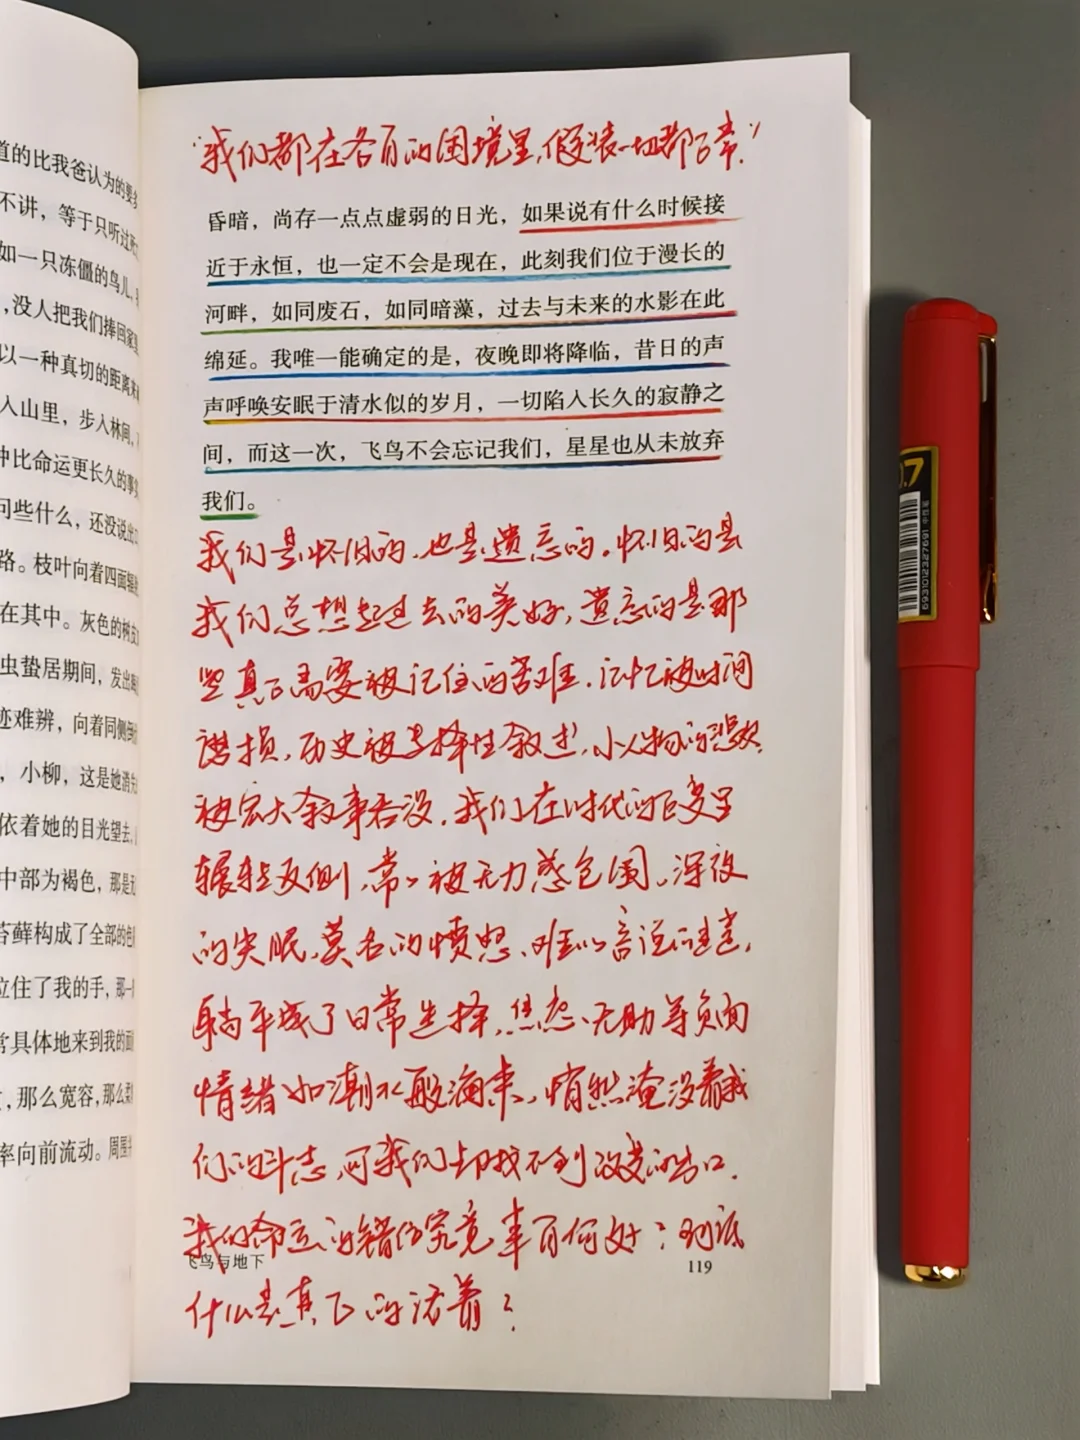 道的比我爸认为的要多
不讲，等于只听过
如一只冻僵的鸟儿，
，没人把我们捧回家
以一种真切的距离来
人山里，步入林间，
种比命运更长久的事
问些什么，还没说出
路。枝叶向着四面
在其中。灰色的树皮
虫蛰居期间，发出
迹难辨，向着同侧倒
，小柳，这是她消失
依着她的目光望去，
中部为褐色，那是
苔藓构成了全部的色
拉住了我的手，那一
常具体地来到我的面
，那么宽容，那么柔
率向前流动。周围
“我们都在各自的困境里，假装一切都正常。”
昏暗，尚存一点点虚弱的日光，如果说有什么时候接
近于永恒，也一定不会是现在，此刻我们位于漫长的
河畔，如同废石，如同暗藻，过去与未来的水影在此
绵延。我唯一能确定的是，夜晚即将降临，昔日的声
声呼唤安眠于清水似的岁月，一切陷入长久的寂静之
间，而这一次，飞鸟不会忘记我们，星星也从未放弃
我们。
我们是怀旧的，也是遗忘的。怀旧的是
我们总想起过去的美好，遗忘的是那
些真正需要被记住的苦难。记忆被时间
磨损，历史被选择性叙述，小人物的悲欢
被宏大叙事吞没。我们在时代的巨变里
辗转反侧，常常被无力感包围。深夜
的失眠、莫名的愤怒、难以言说的
躺平成了日常选择，焦虑、无助等负面
情绪如潮水般涌来，悄然淹没着我
们的斗志，可我们却找不到改变的出口。
我们命运的错位究竟来自何处？到底
什么是真正的活着？
飞鸟与地下
119
0.7
中性笔
6931012327691